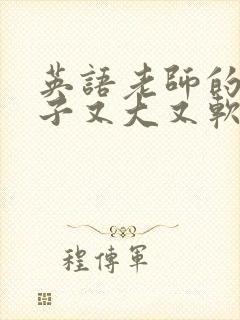 英語老師的
子又大又軟
程傳軍